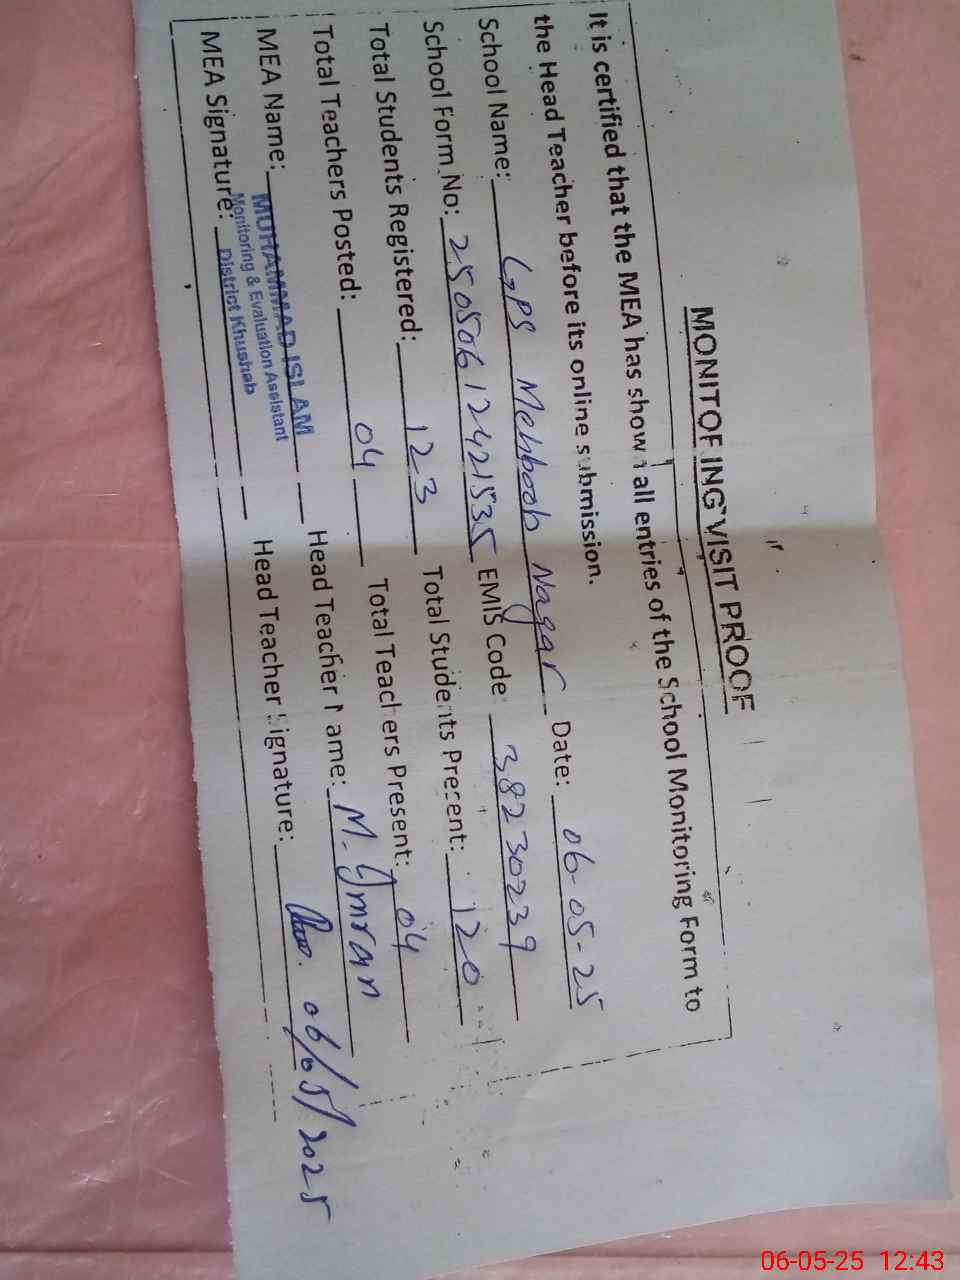 MONITORING VISIT PROOF
It is certified that the MEA has shown all entries of the School Monitoring Form to
the Head Teacher before its online submission.
School Name: GPS Mehboob Nagar Date: 06-05-25
School Form No: 25050612421535 EMIS Code: 38230239
Total Students Registered: 123 Total Students Precent: 120
Total Teachers Posted: 04 Total Teachers Present: 04
MEA Name: MUHAMMAD ISLAM Head Teacher Name: M. Imran
Monitoring & Evaluation Assistant
District Khushab
MEA Signature: Head Teacher Signature: 06/05/2025
06-05-25 12:43